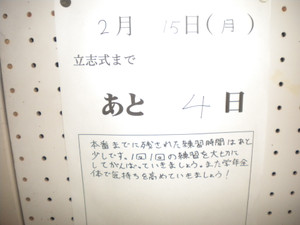 2月 15日(月)
立志式まで
あと 4日
本番までに残された練習時間はあと
少しです。1回1回の練習を大切に
してがんばっていきましょう。また学年全
体で気持ちを高めていきましょう！